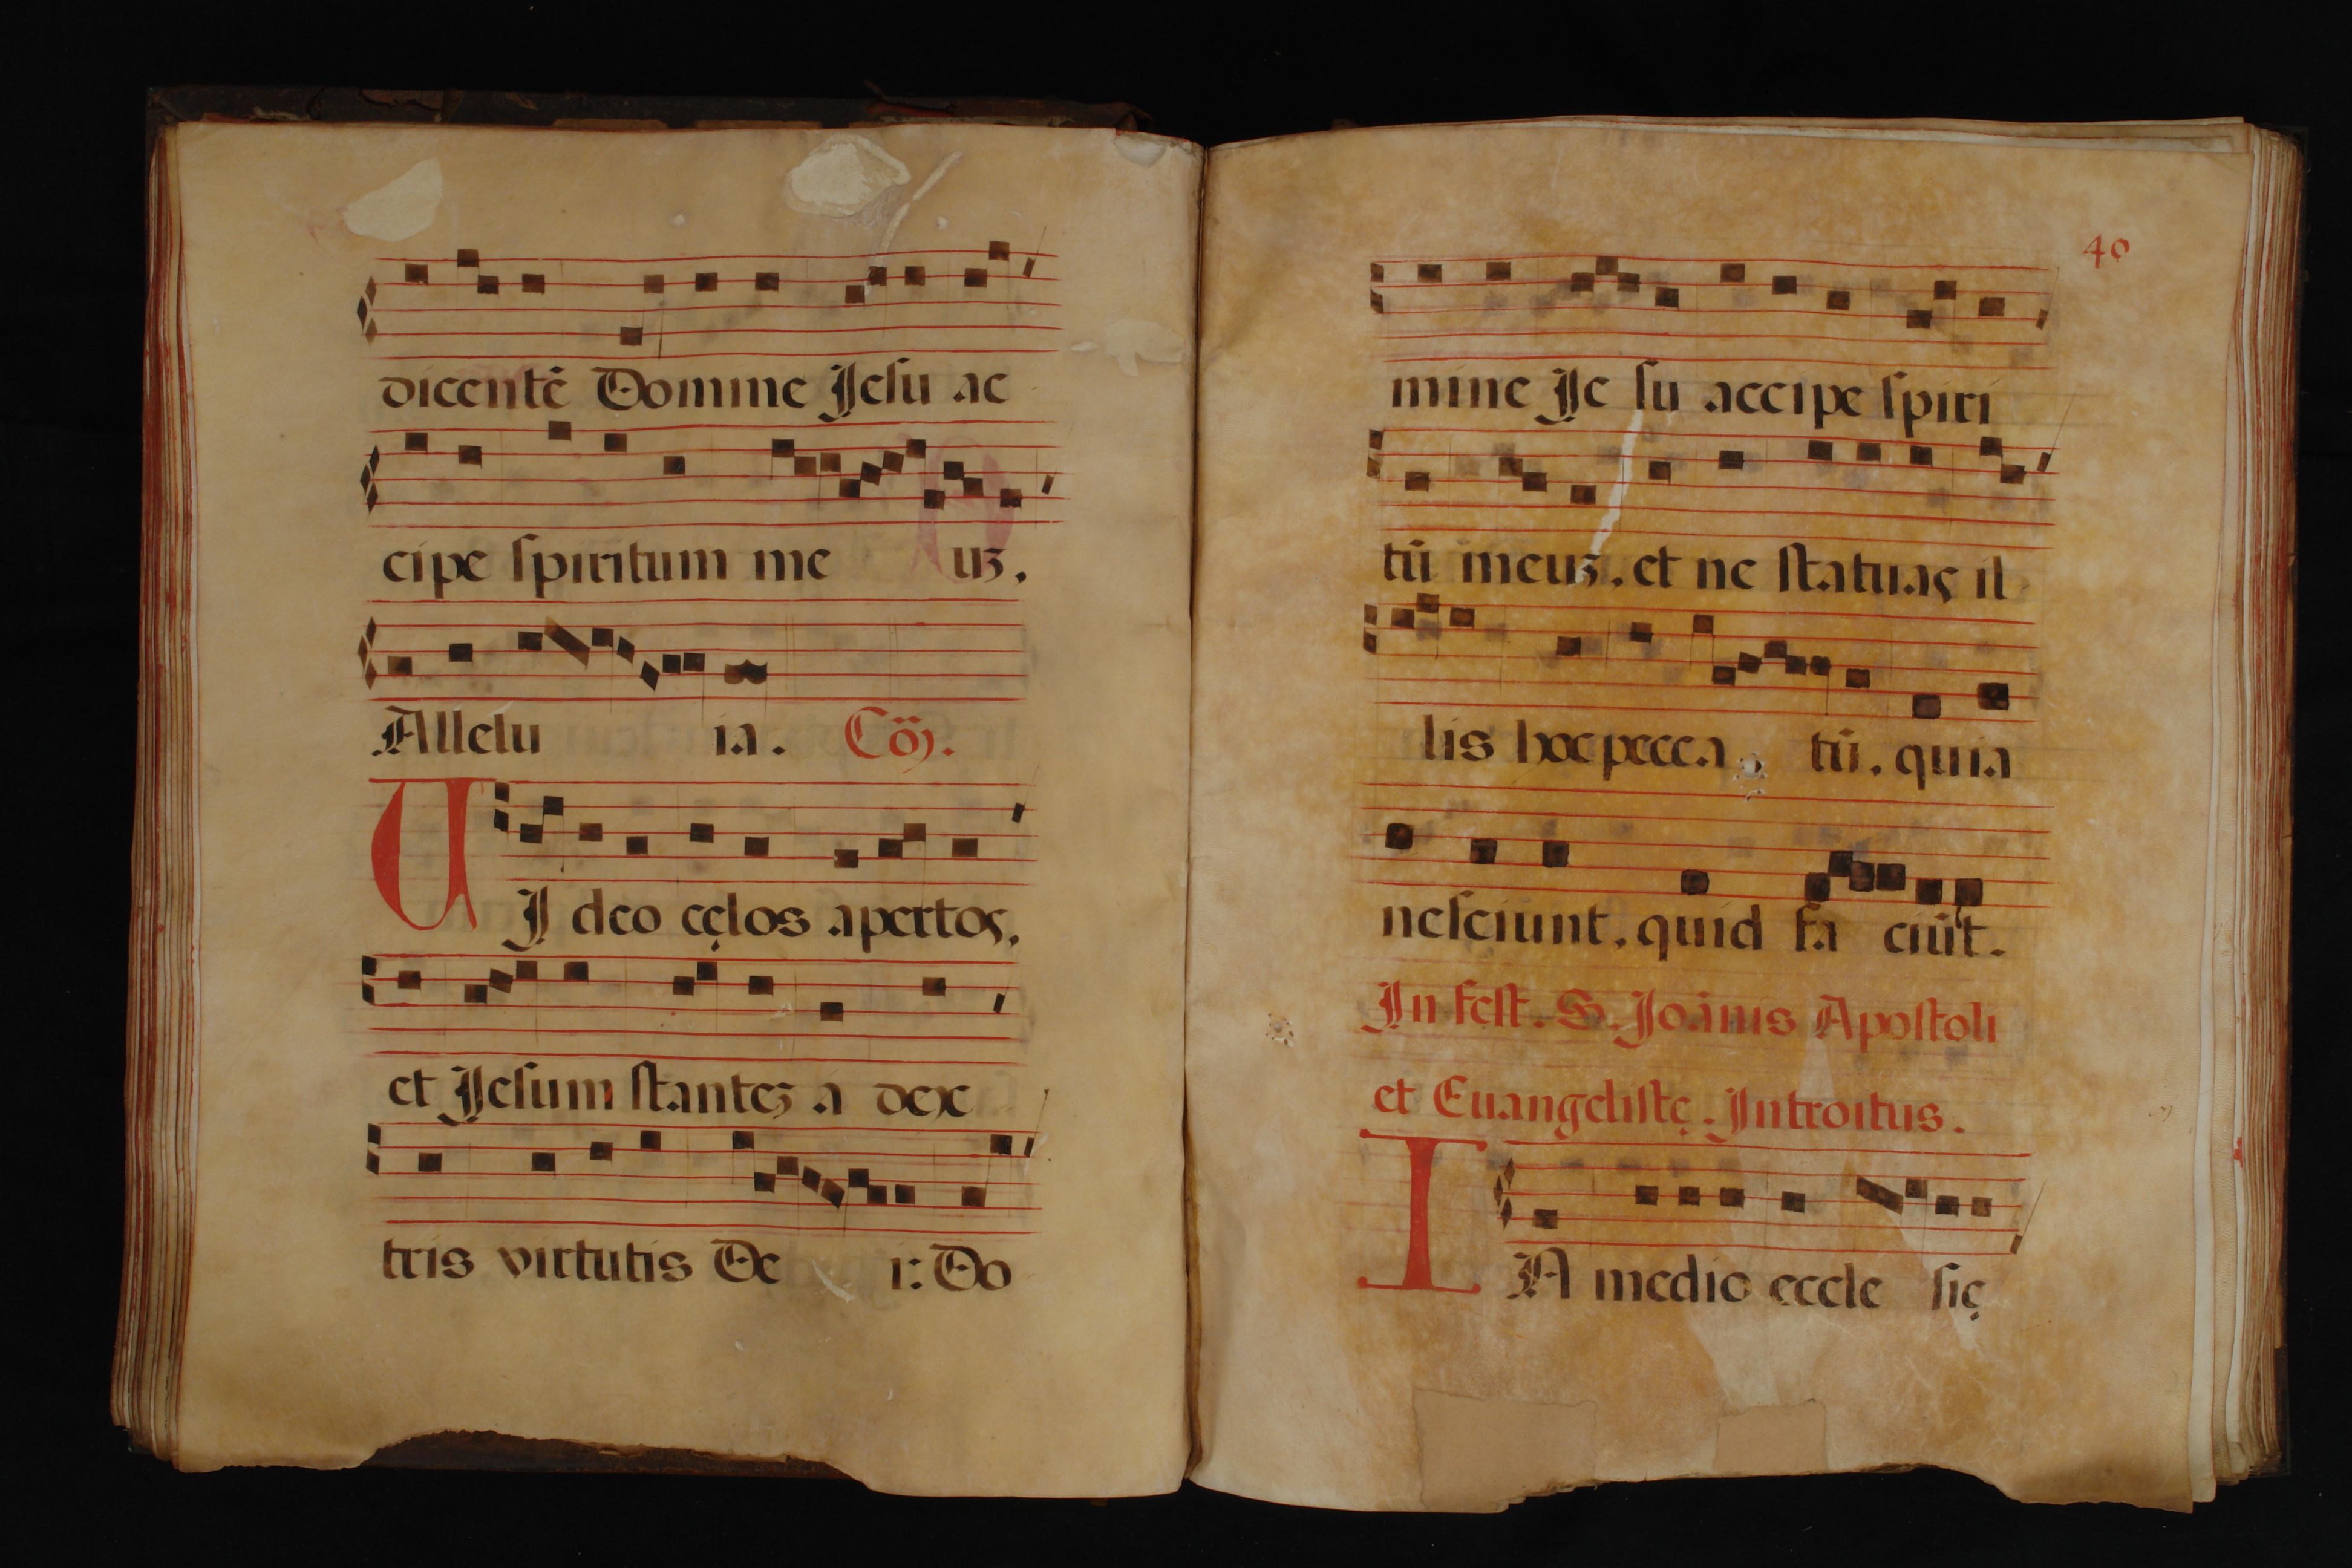 dicentē Domine Jesu ac
cipe spiritum me uʒ.
Allelu ia. Cōȝ.
VJ deo cęlos apertos,
et Jesum stanteʒ a dex
tris virtutis De i: Do
40
mine Je su accipe spiri
tū meuʒ, et ne statuas il
lis hoc pecca tū, quia
nesciunt, quid fa ciūt.
In fest. S. Joānis Apostoli
et Euangelistę. Introitus.
IN medio eccle się